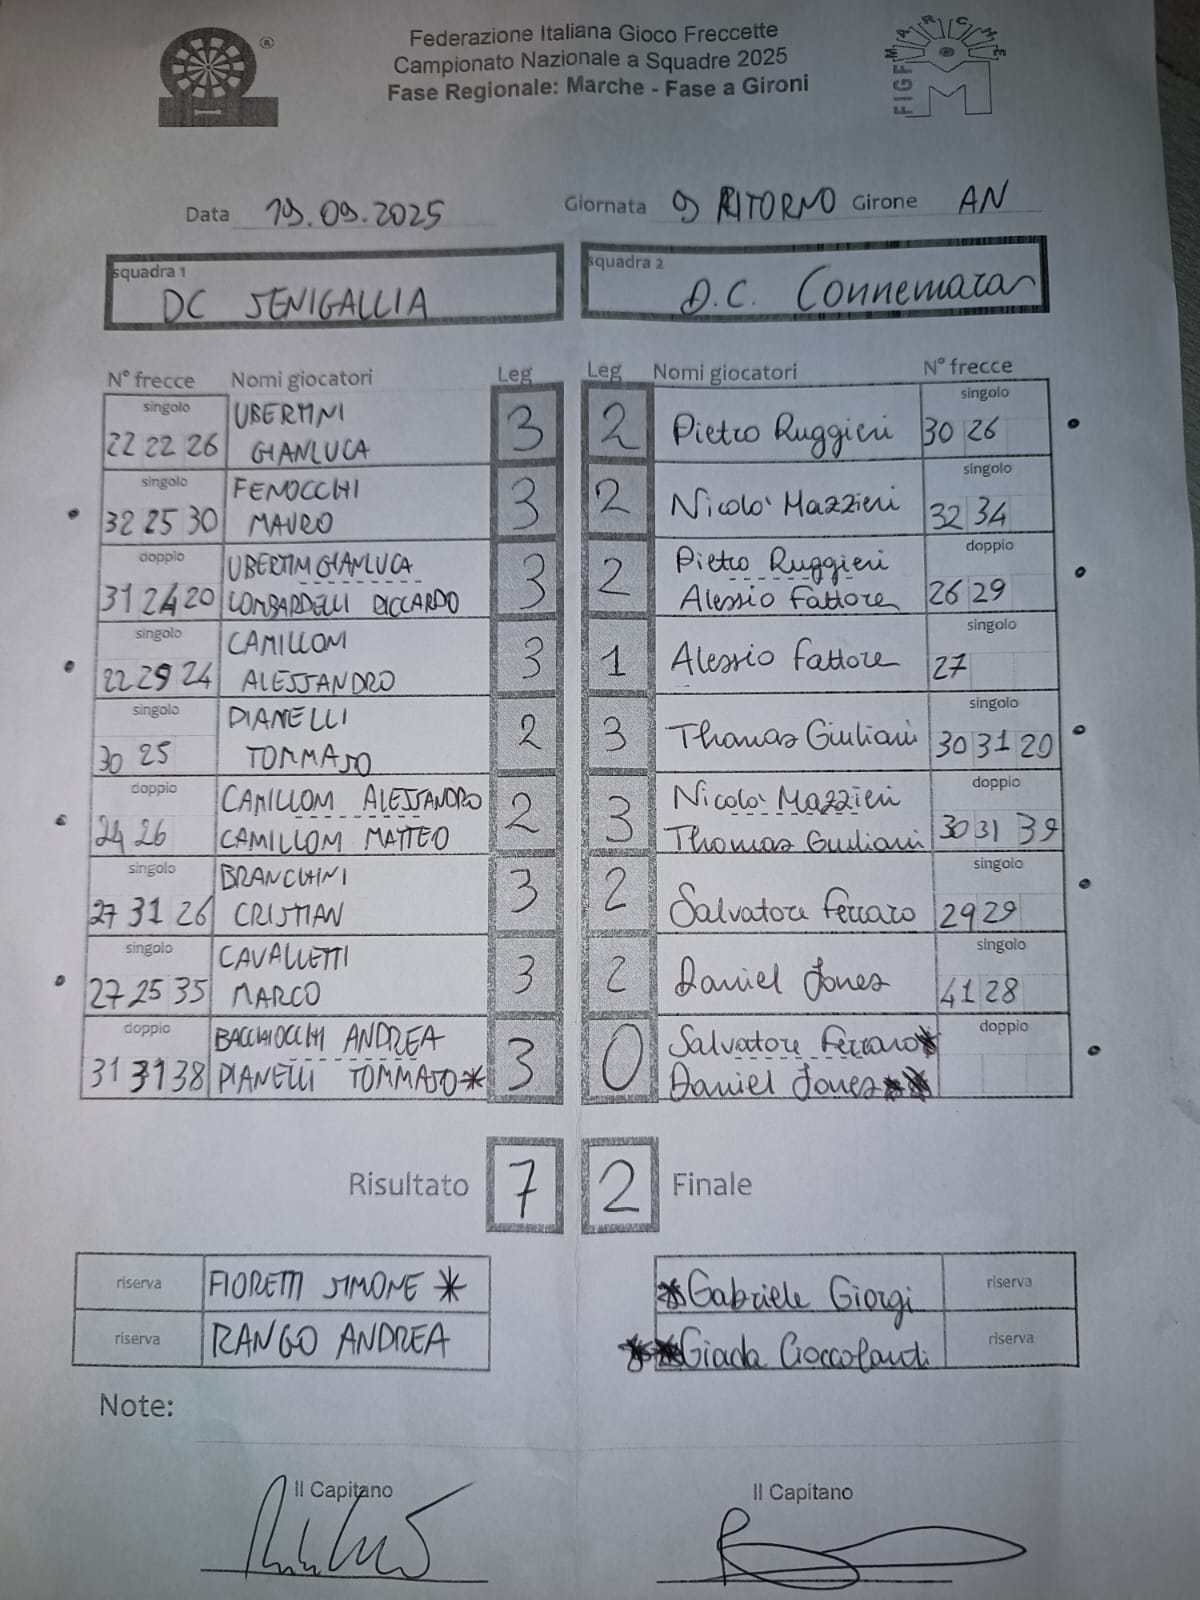 Federazione Italiana Gioco Freccette
Campionato Nazionale a Squadre 2025
Fase Regionale: Marche - Fase a Gironi
®
MARCHE
FIGF
M
Data 19.09.2025 Giornata 9 RITORNO Girone AN
squadra 1 DC SENIGALLIA
squadra 2 D.C. Connemara
N° frecce Nomi giocatori Leg Leg Nomi giocatori N° frecce
singolo UBERTINI singolo
22 22 26 GIANLUCA 3 2 Pietro Ruggieri 30 26
singolo FENOCCHI singolo
32 25 30 MAURO 3 2 Nicolò Mazzieri 32 34
doppio UBERTINI GIANLUCA Pietro Ruggieri doppio
31 24 20 LOMBARDELLI RICCARDO 3 2 Alessio Fattore 26 29
singolo CAMILLONI singolo
22 29 24 ALESSANDRO 3 1 Alessio Fattore 27
singolo PIANELLI singolo
30 25 TOMMASO 2 3 Thomas Giuliani 30 31 20
doppio CAMILLONI ALESSANDRO Nicolò Mazzieri doppio
24 26 CAMILLONI MATTEO 2 3 Thomas Giuliani 30 31 39
singolo BRANCHINI singolo
27 31 26 CRISTIAN 3 2 Salvatore Ferraro 29 29
singolo CAVALLETTI singolo
27 25 35 MARCO 3 2 Daniel Jones 41 28
doppio BACCHIOCCHI ANDREA Salvatore Ferraro* doppio
31 31 38 PIANELLI TOMMASO* 3 0 Daniel Jones**
Risultato 7 2 Finale
riserva FIORETTI SIMONE * *Gabriele Giorgi riserva
riserva RANGO ANDREA **Giada Cioccolanti riserva
Note:
Il Capitano Il Capitano